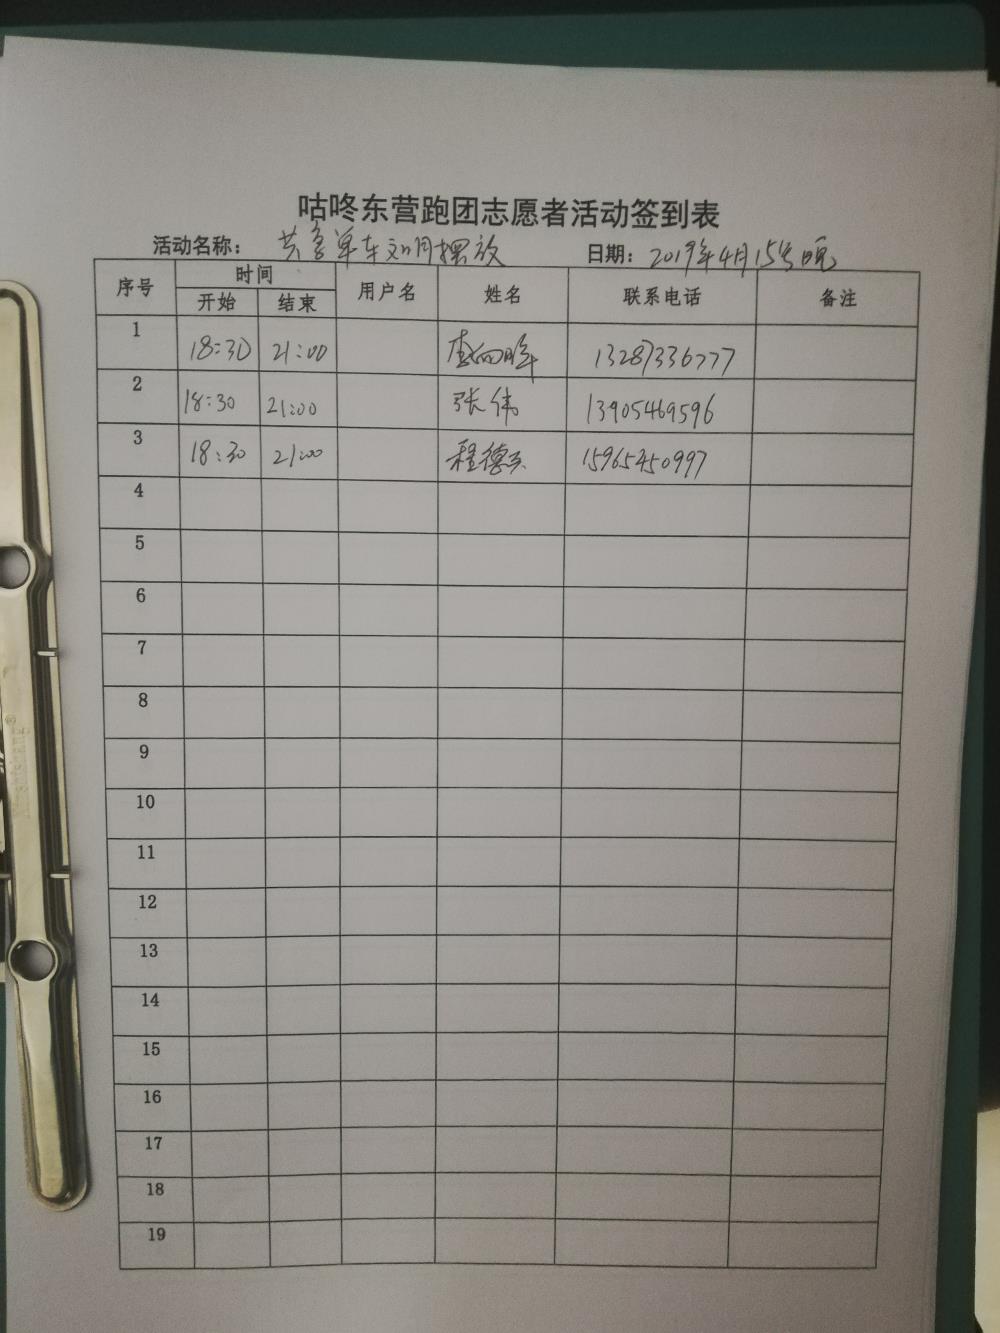 咕咚东营跑团志愿者活动签到表
活动名称: 共享单车文明摆放 日期: 2019年4月15号晚
序号 时间 用户名 姓名 联系电话 备注
开始 结束
1 18:30 21:00 13287336777
2 18:30 21:00 张伟 13905469596
3 18:30 21:00 程德 15965450997
4
5
6
7
8
9
10
11
12
13
14
15
16
17
18
19